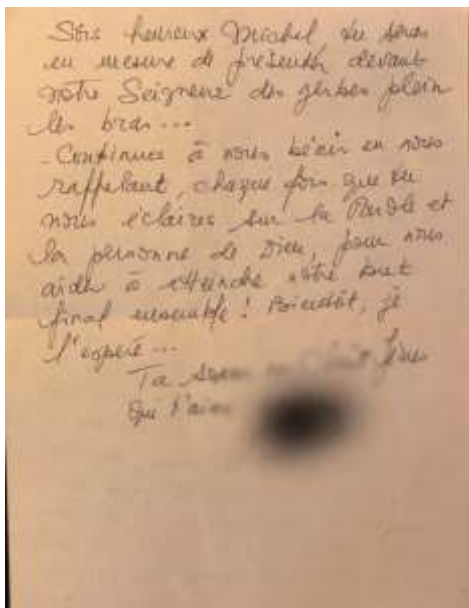 Sois heureux Michel tu seras
en mesure de présenter devant
notre Seigneur des gerbes plein
les bras...
- Continues à nous bénir en nous
rappelant, chaque fois que tu
nous éclaires sur la Parole et
la personne de Dieu, pour nous
aider à atteindre notre but
final ensemble ! Bientôt, je
l'espère...
Ta soeur en Jésus
Qui t'aime